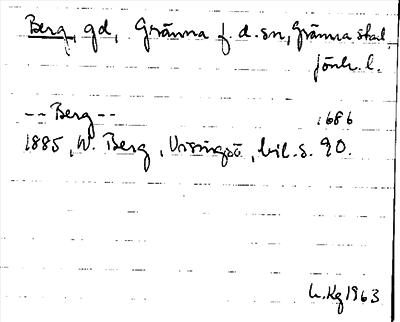 Berg, gd, Gränna f. d. sn, Gränna skal
Jönk. l.
-- Berg --
1686
1885, W. Berg, Visingsö, bil. s. 90.
h. Kg 1963